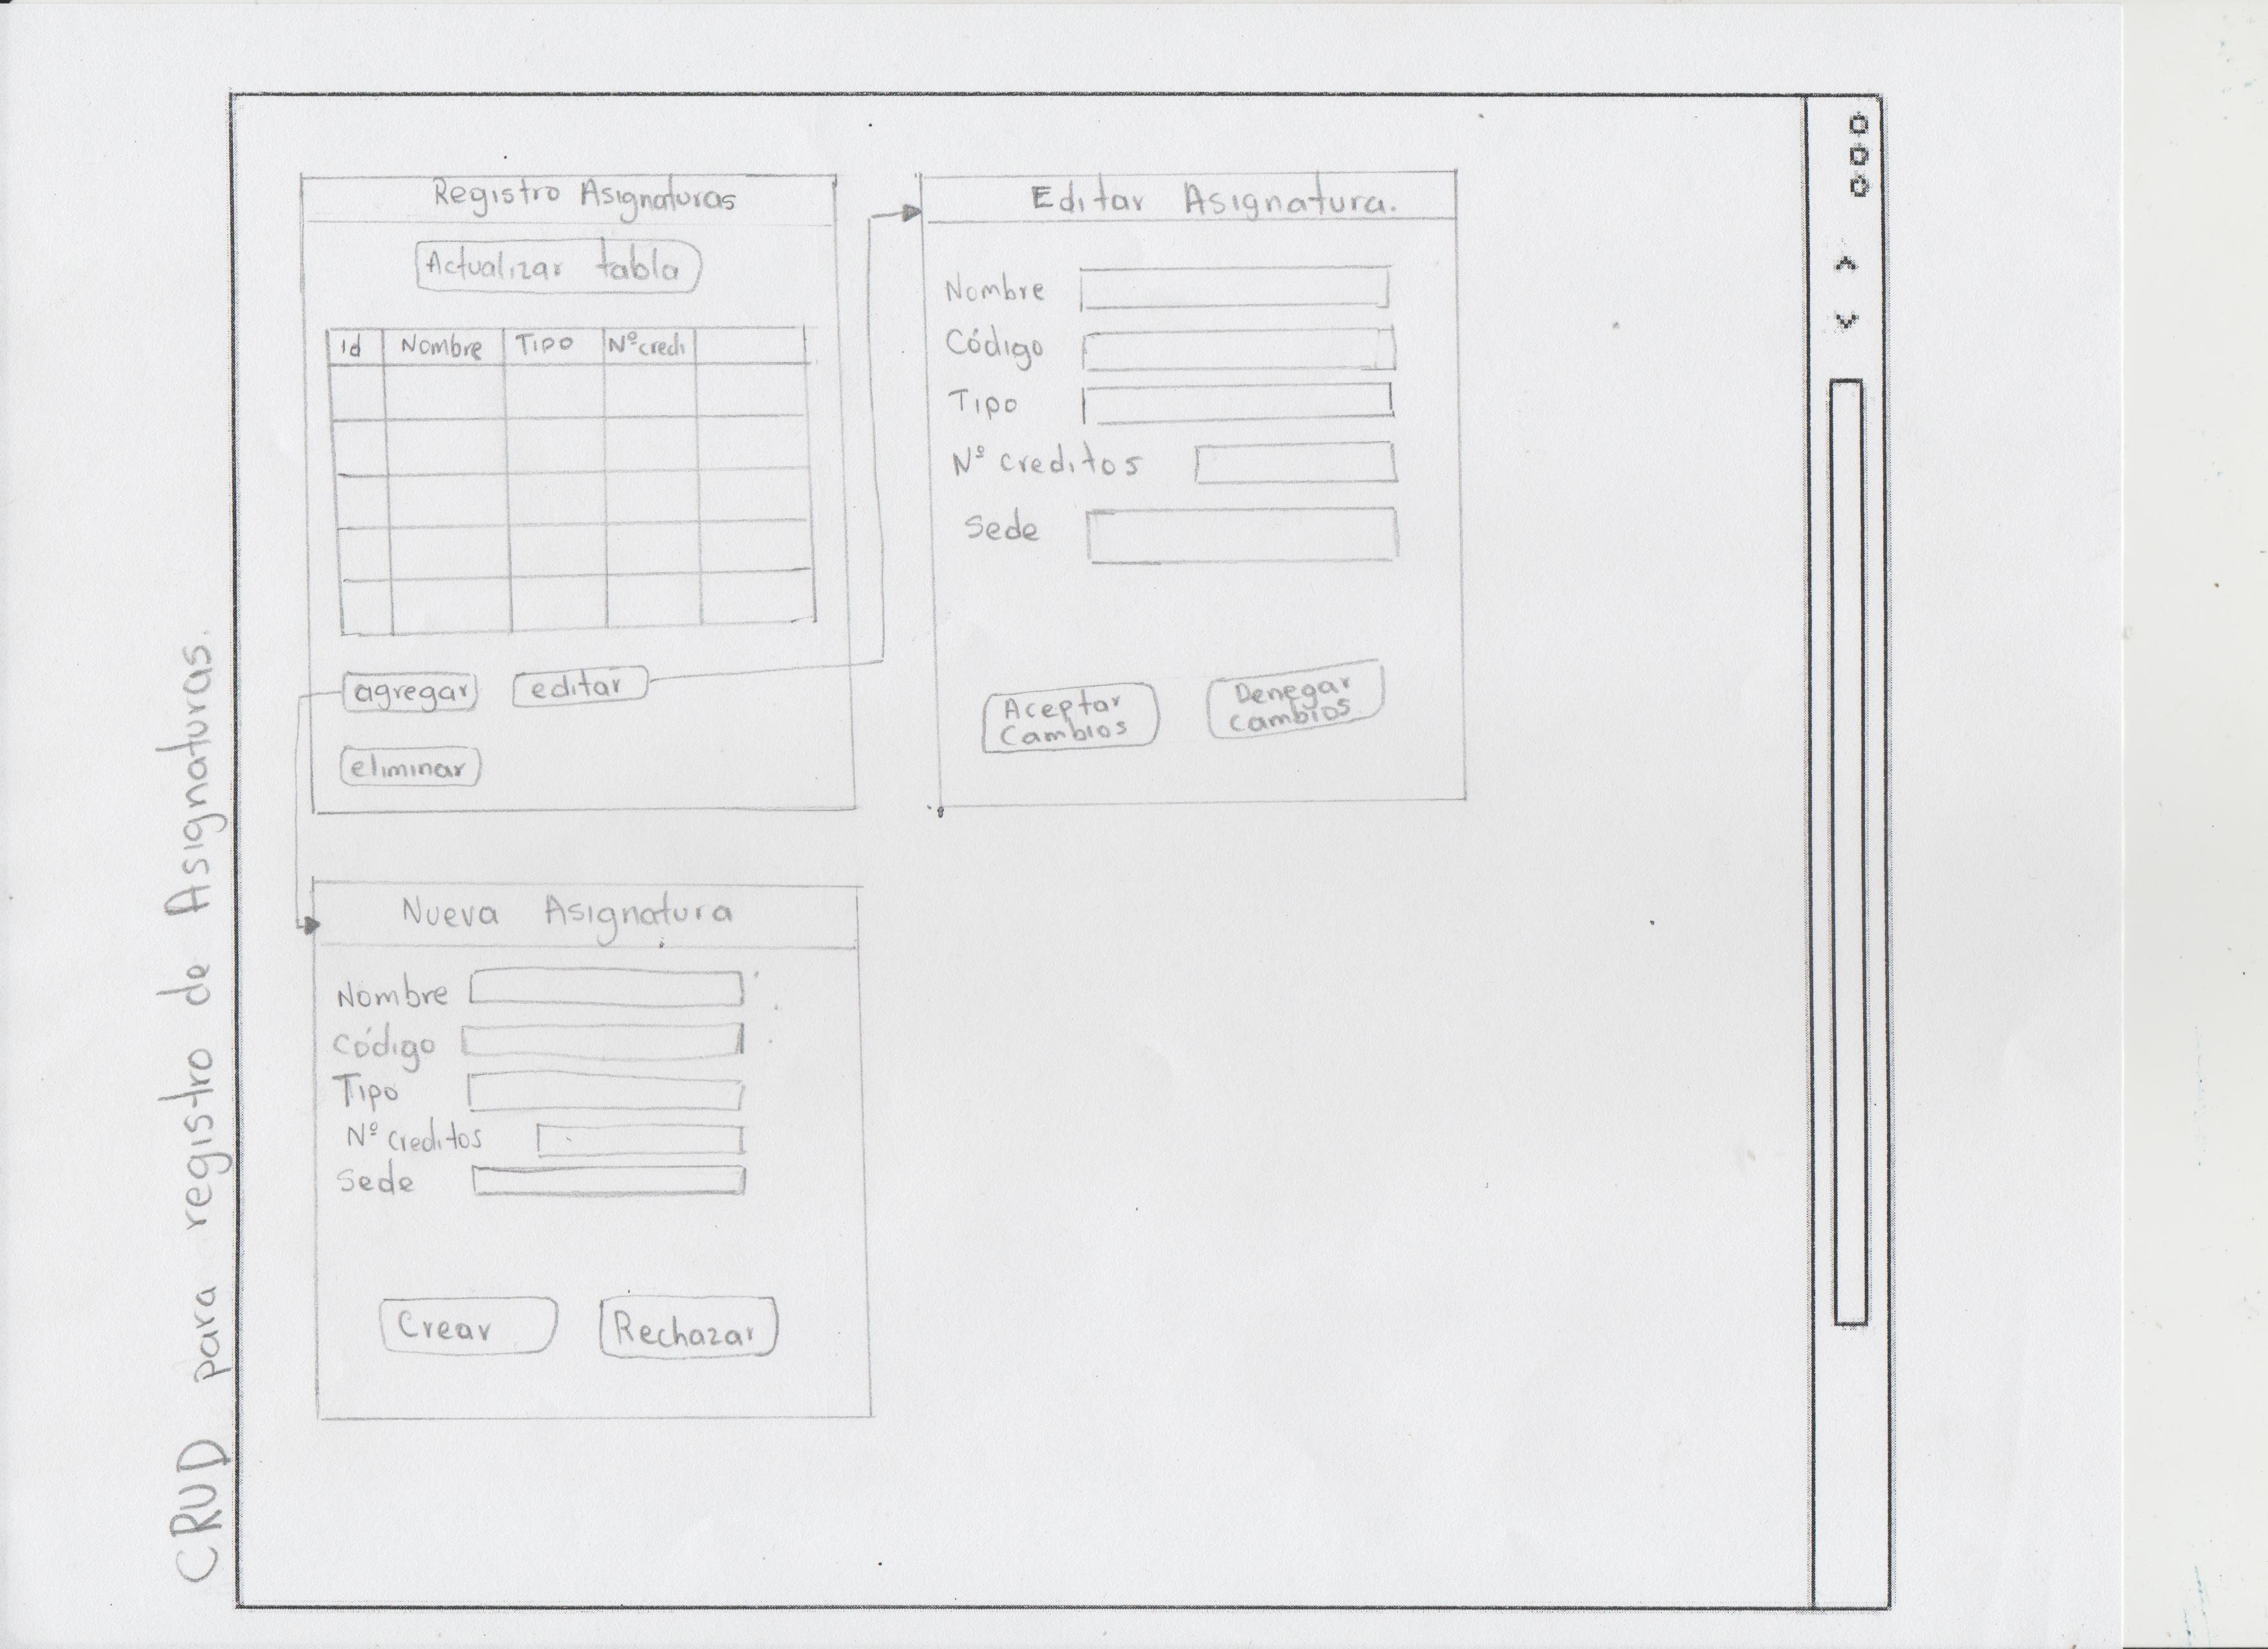 CRUD para registro de Asignaturas.
Registro Asignaturas
Actualizar tabla
Id Nombre Tipo Nº credi
agregar editar
eliminar
Editar Asignatura.
Nombre
Código
Tipo
Nº creditos
Sede
Aceptar
Cambios
Denegar
cambios
Nueva Asignatura
Nombre
Código
Tipo
Nº creditos
Sede
Crear Rechazar